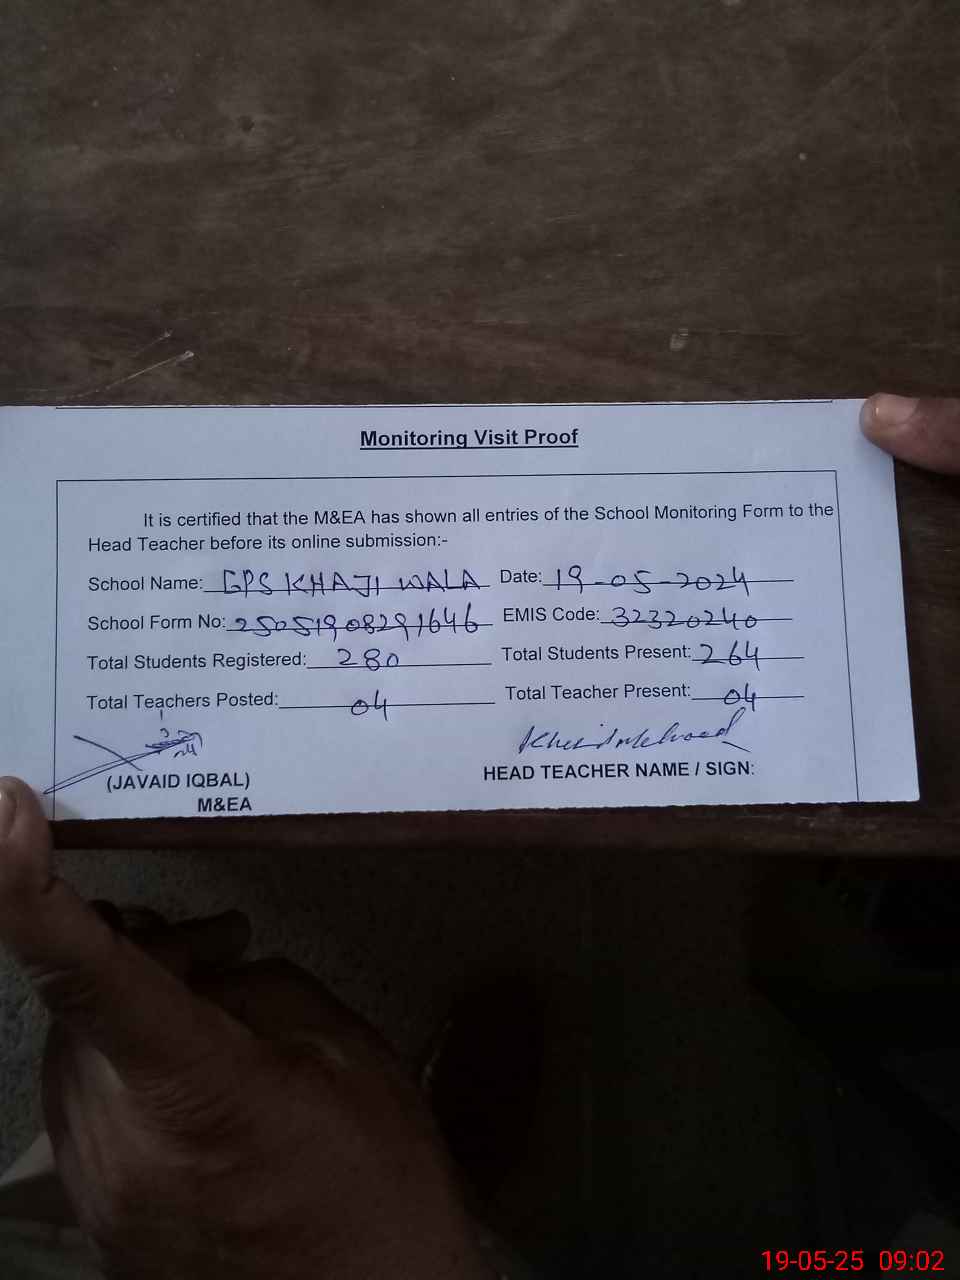 Monitoring Visit Proof
It is certified that the M&EA has shown all entries of the School Monitoring Form to the
Head Teacher before its online submission:-
School Name: GPS KHAJI WALA Date: 19-05-2024
School Form No: 25051908291646 EMIS Code: 32320240
Total Students Registered: 280 Total Students Present: 264
Total Teachers Posted: 04 Total Teacher Present: 04
(JAVAID IQBAL) HEAD TEACHER NAME / SIGN:
M&EA
19-05-25 09:02